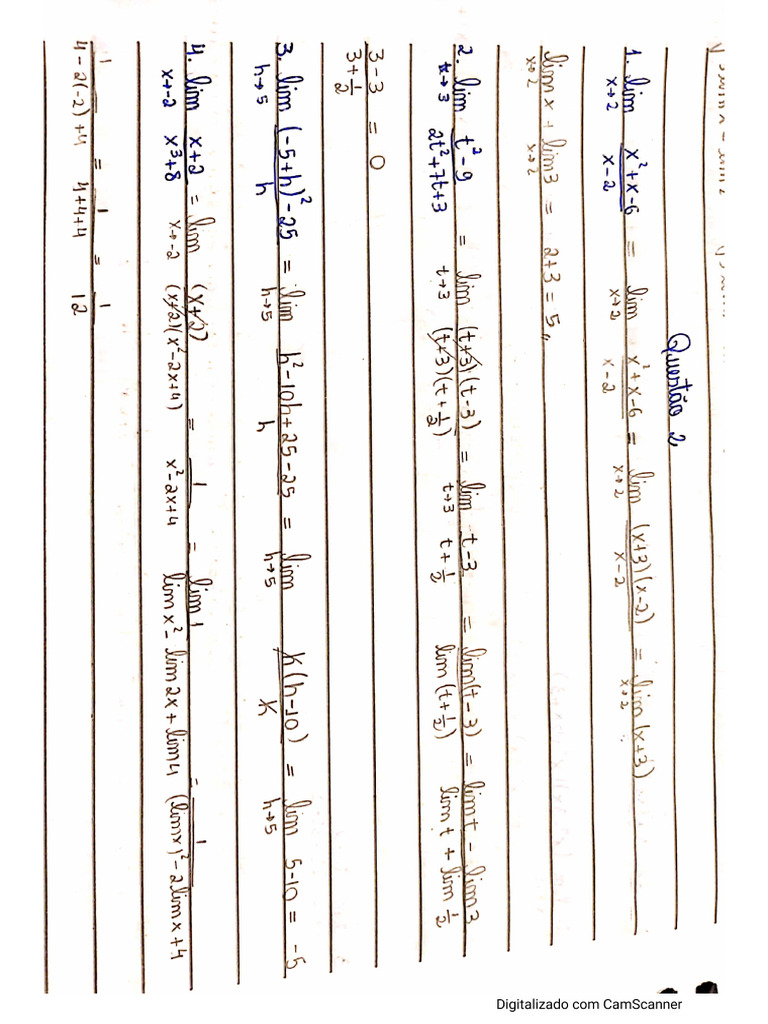 Questão 2
1. lim x→2 x²+x-6 / x-2 = lim x→2 x²+x-6 / x-2 = lim x→2 (x+3)(x-2) / x-2 = lim x→2 (x+3)
lim x→2 x + lim x→2 3 = 2+3 = 5,,
2. lim t→3 t²-9 / 2t²+7t+3 = lim t→3 (t+3)(t-3) / (t+3)(t+1/2) = lim t→3 t-3 / t+1/2 = lim(t-3) / lim(t+1/2) = lim t - lim 3 / lim t + lim 1/2
3-3 / 3+1/2 = 0
3. lim h→5 (-5+h)²-25 / h = lim h→5 h²-10h+25-25 / h = lim h→5 h(h-10) / h = lim h→5 5-10 = -5
4. lim x→-2 x+2 / x³+8 = lim x→-2 (x+2) / (x+2)(x²-2x+4) = 1 / x²-2x+4 = lim 1 / lim x² - lim 2x + lim 4 = 1 / (lim x)² - 2 lim x + 4
1 / 4-2(-2)+4 = 1 / 4+4+4 = 1 / 12
Digitalizado com CamScanner